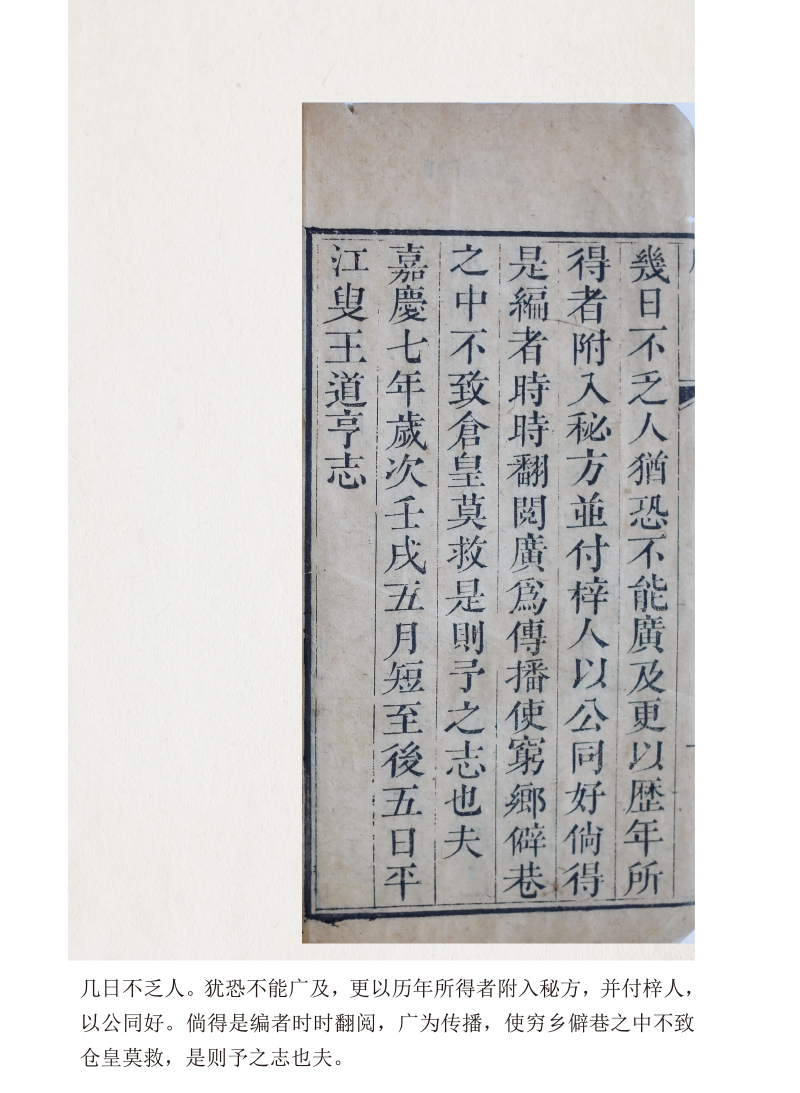 幾日不乏人猶恐不能廣及更以歷年所
得者附入秘方並付梓人以公同好倘得
是編者時時翻閱廣爲傳播使窮鄉僻巷
之中不致倉皇莫救是則予之志也夫
嘉慶七年歲次壬戌五月短至後五日平
江叟王道亨志
几日不乏人。犹恐不能广及，更以历年所得者附入秘方，并付梓人，
以公同好。倘得是编者时时翻阅，广为传播，使穷乡僻巷之中不致
仓皇莫救，是则予之志也夫。